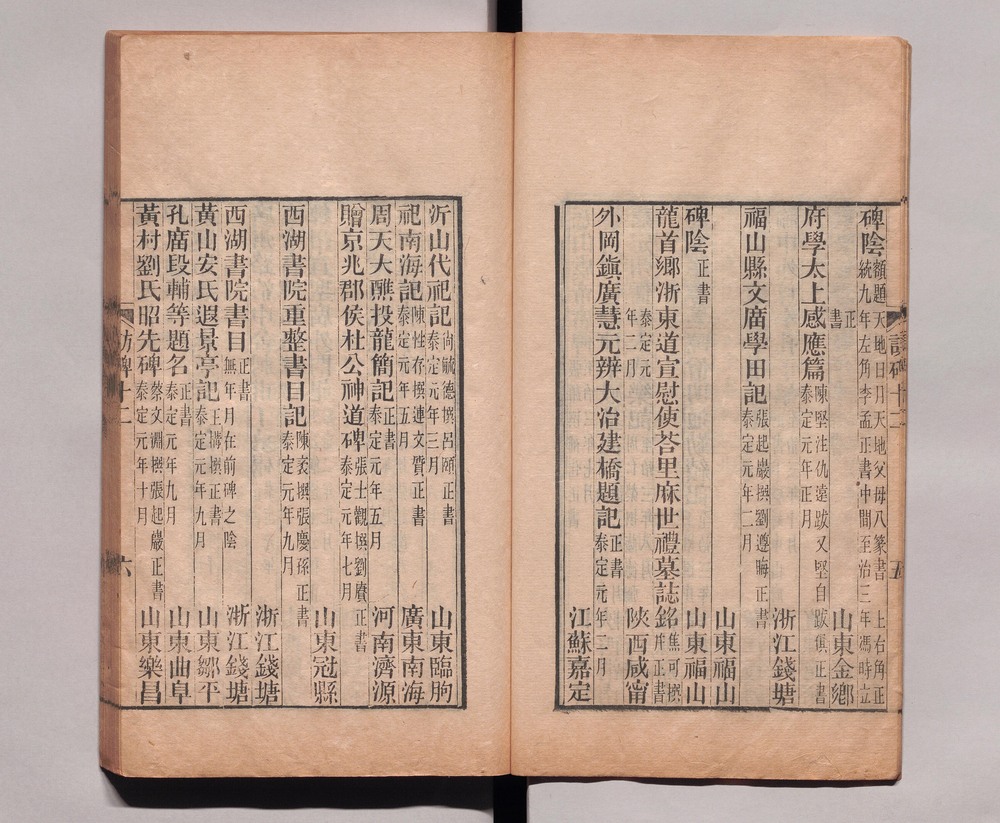 碑陰額題天地日月天地父母八篆書上右角正
統九年左角李孟正書中間至治三年馮時立
正
書
山東金鄉
府學太上感應篇陳堅注仇遠跋又堅自跋俱正書
泰定元年正月
浙江錢塘
福山縣文廟學田記張起巖撰劉遵晦正書
泰定元年二月
山東福山
碑陰正書
山東福山
龍首鄉浙東道宣慰使荅里麻世禮墓誌銘焦可撰
幷正書
泰定元
年二月
陝西咸甯
外岡鎮廣慧元辨大治建橋題記正書
泰定元年二月
江蘇嘉定
訪碑十二
五
沂山代祀記尚毓德撰呂頤正書
泰定元年三月
山東臨朐
祀南海記陳性存撰連文贇正書
泰定元年五月
廣東南海
周天大醮投龍簡記正書
泰定元年五月
河南濟源
贈京兆郡侯杜公神道碑張士觀撰劉賡正書
泰定元年七月
山東冠縣
西湖書院重整書目記陳袤撰張慶孫正書
泰定元年九月
浙江錢塘
西湖書院書目正書
無年月在前碑之陰
浙江錢塘
黃山安氏遐景亭記王構撰正書
泰定元年九月
山東鄒平
孔廣段輔等題名正書
泰定元年九月
山東曲阜
黃村劉氏昭先碑蔡文淵撰張起巖正書
泰定元年十月
山東樂昌
訪碑十二
六